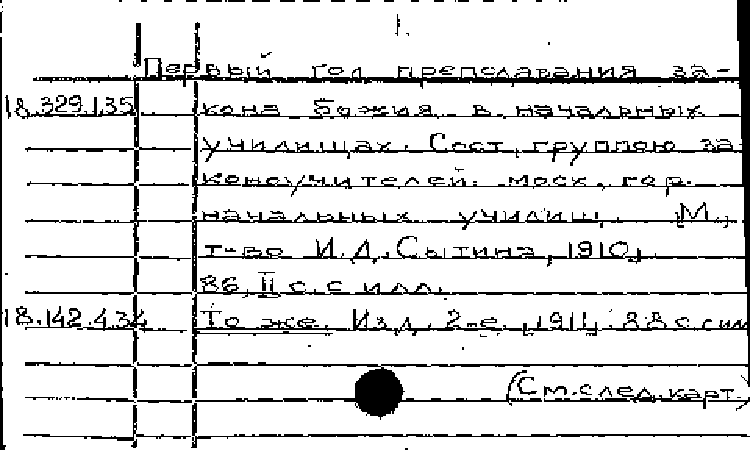 1.
Первый год преподавания за-
18.329.135 кона божия в начальных
училищах. Сост. группою за-
коноучителей моск. гор.
начальных училищ. [М.,
т-во И.Д. Сытина, 1910]
86, II с. с илл.
18.142.434 То же. Изд. 2-е. [1911]. 88 с. с илл
(См. след. карт.)